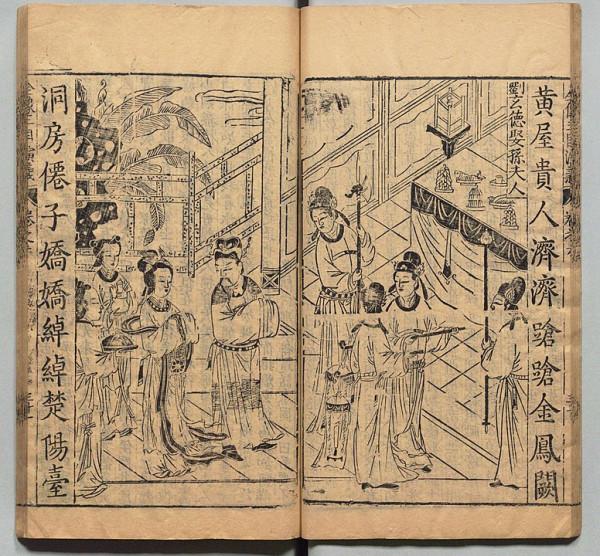 黄屋貴人濟濟蹌蹌金鳳闕
劉玄德娶孫夫人
洞房僊子嬌嬌綽綽楚陽臺